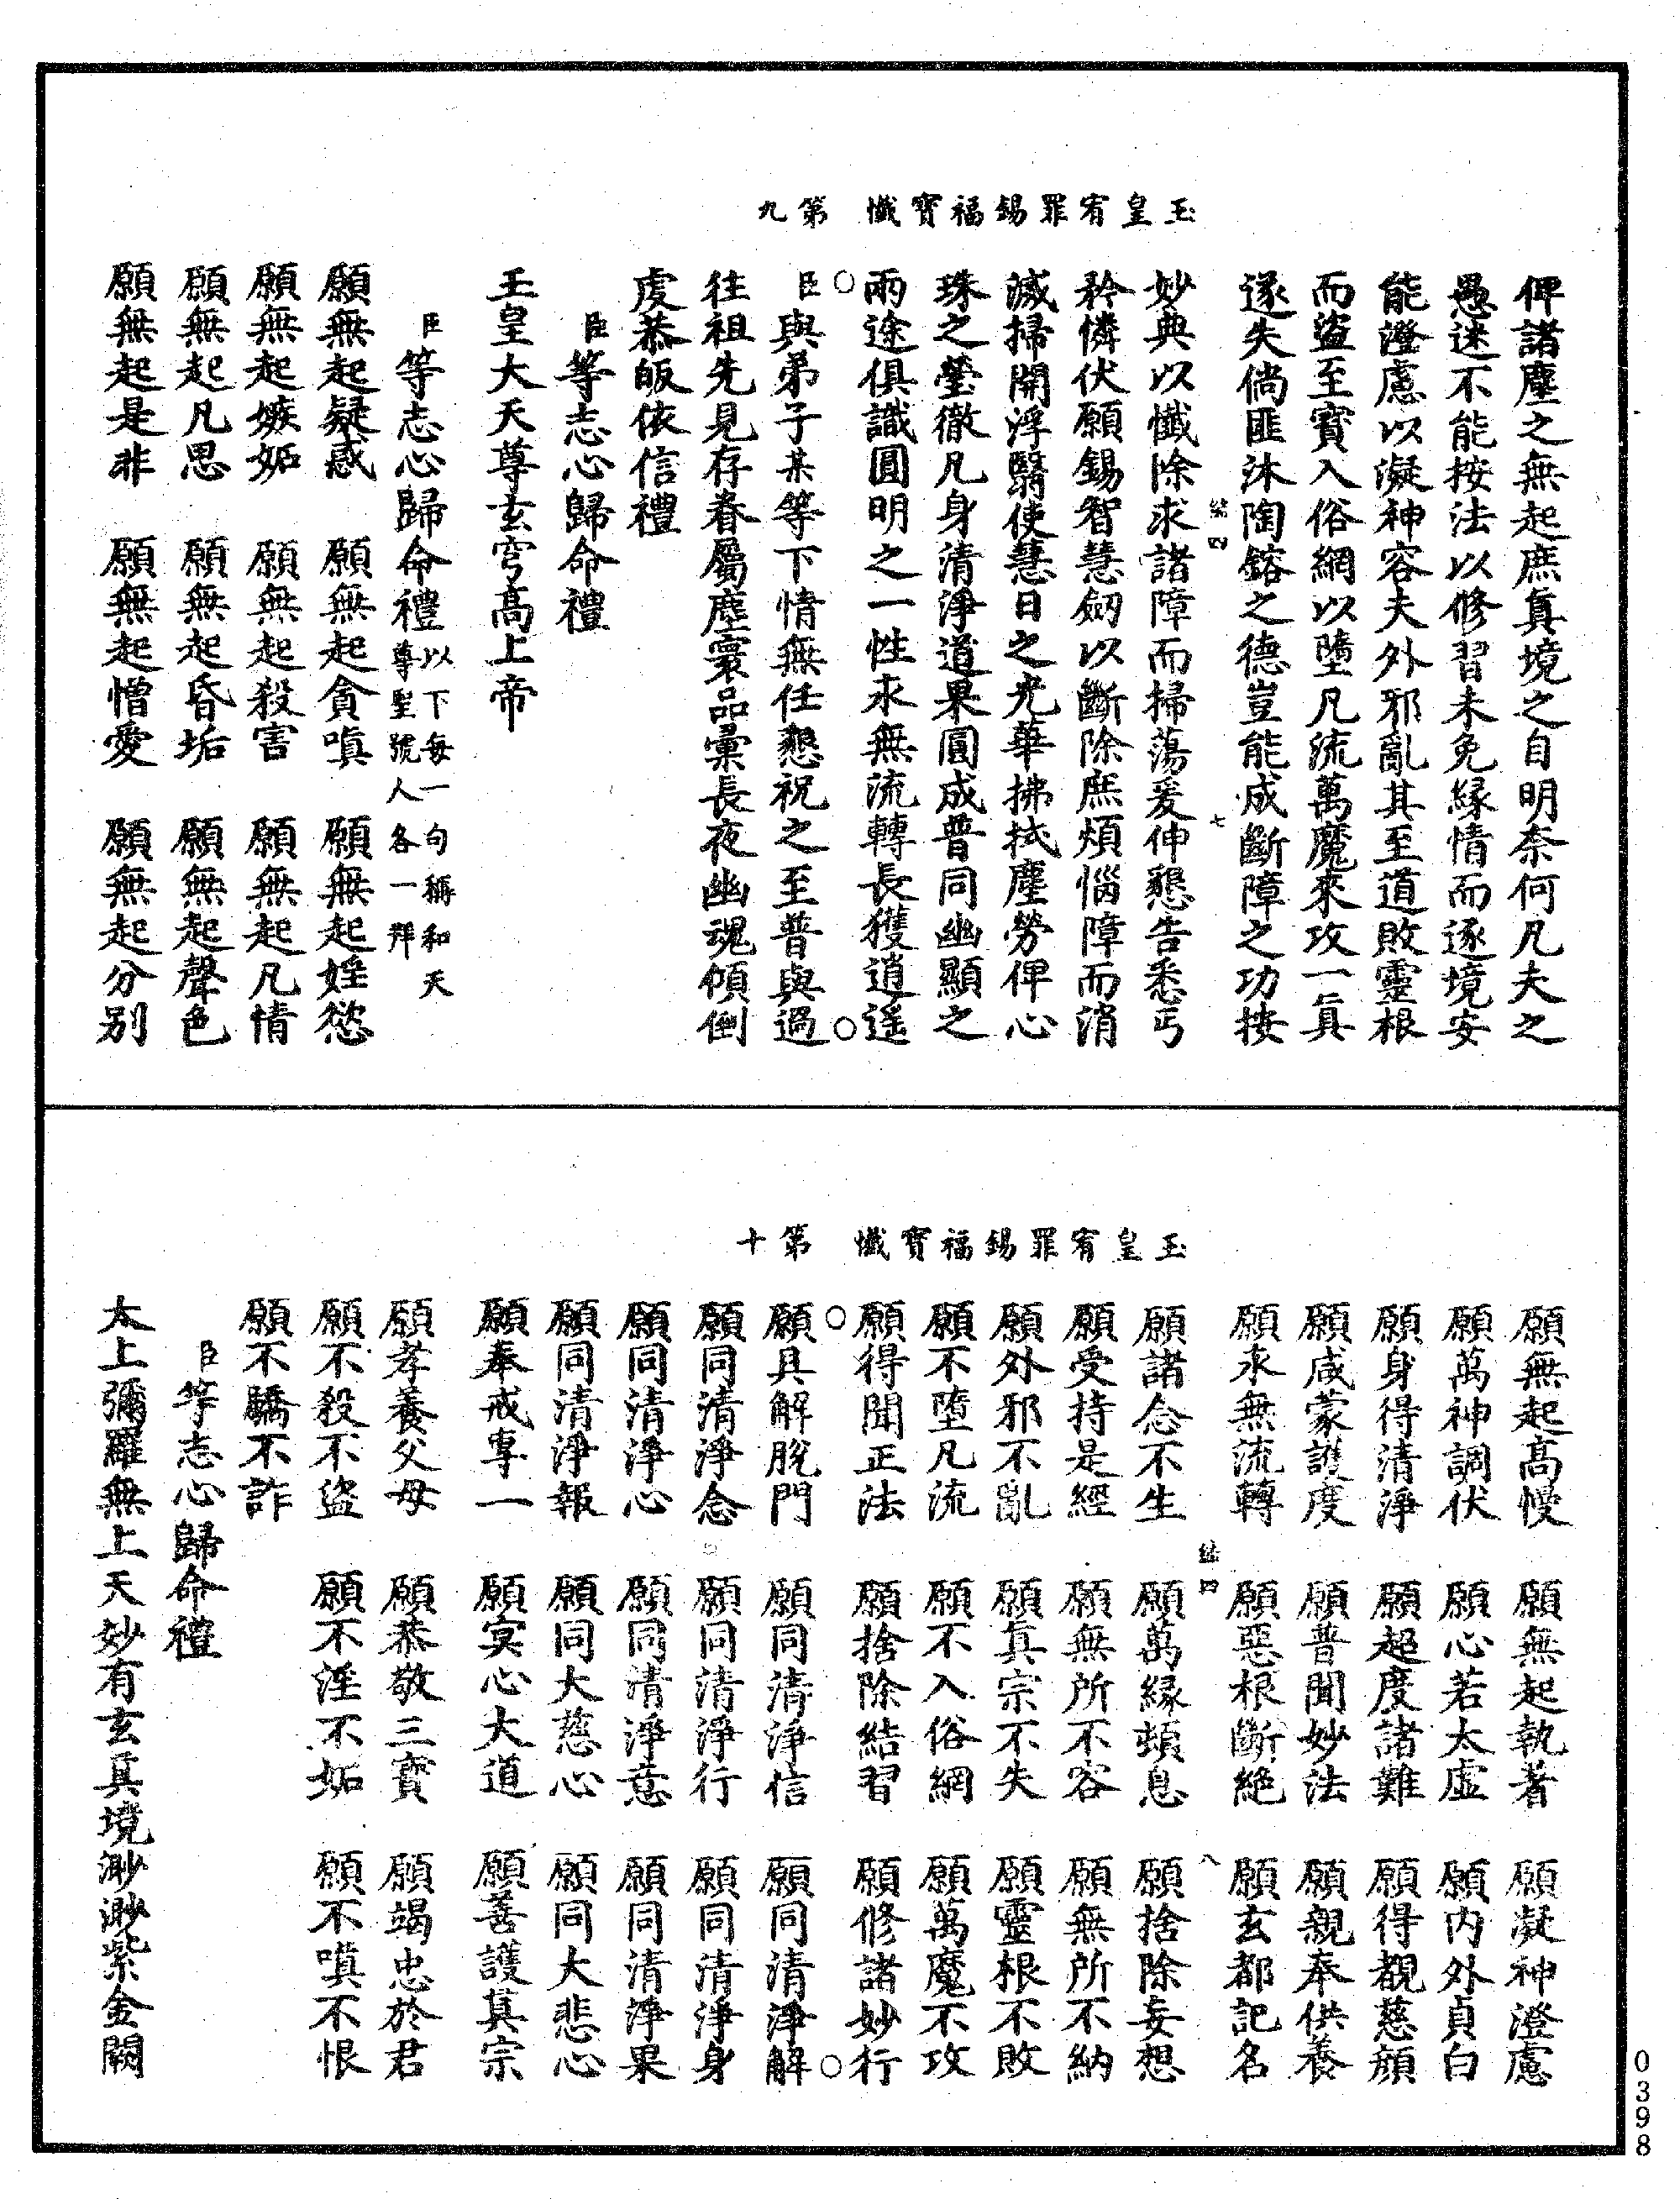 玉皇宥罪錫福寶懺　第九
俾諸塵之無起庶眞境之自明奈何凡夫之
愚迷不能按法以修習未免緣情而逐境安
能澄慮以凝神容夫外邪亂其至道敗靈根
而盜至寶入俗網以墮凡流萬魔來攻一眞
遂失倘匪沐陶鎔之德豈能成斷障之功按
四　七
妙典以懺除求諸障而掃蕩爰伸懇告悉丐
矜憐伏願錫智慧劒以斷除庶煩惱障而消
滅掃開浮翳使慧日之光華拂拭塵勞俾心
珠之瑩徹凡身清淨道果圓成普同幽顯之
兩途俱識圓明之一性永無流轉長獲逍遥
○　○
臣與弟子某等下情無任懇祝之至普與過
往祖先見存眷屬塵寰品彙長夜幽魂傾倒
虔恭皈依信禮
臣等志心歸命禮
玉皇大天尊玄穹高上帝
臣等志心歸命禮以下每一句稱和天尊聖號人各一拜
願無起疑惑　願無起貪嗔　願無起婬慾
願無起嫉妬　願無起殺害　願無起凡情
願無起凡思　願無起昏垢　願無起聲色
願無起是非　願無起憎愛　願無起分别
玉皇宥罪錫福寶懺　第十
願無起高慢　願無起執著　願凝神澄慮
願萬神調伏　願心若太虛　願内外貞白
願身得清淨　願超度諸難　願得覩慈顔
願咸蒙護度　願普聞妙法　願親奉供養
願永無流轉　願惡根斷絶　願玄都記名
四　八
願諸念不生　願萬緣頓息　願捨除妄想
願受持是經　願無所不容　願無所不納
願外邪不亂　願眞宗不失　願靈根不敗
願不墮凡流　願不入俗網　願萬魔不攻
願得聞正法　願捨除結習　願修諸妙行
○　○
願具解脫門　願同清淨信　願同清淨解
願同清淨念　願同清淨行　願同清淨身
願同清淨心　願同清淨意　願同清淨果
願同清淨報　願同大慈心　願同大悲心
願奉戒專一　願冥心大道　願善護眞宗
願孝養父母　願恭敬三寶　願竭忠於君
願不殺不盜　願不淫不妬　願不嗔不恨
願不驕不詐
臣等志心歸命禮
太上彌羅無上天妙有玄眞境渺渺紫金闕
0398